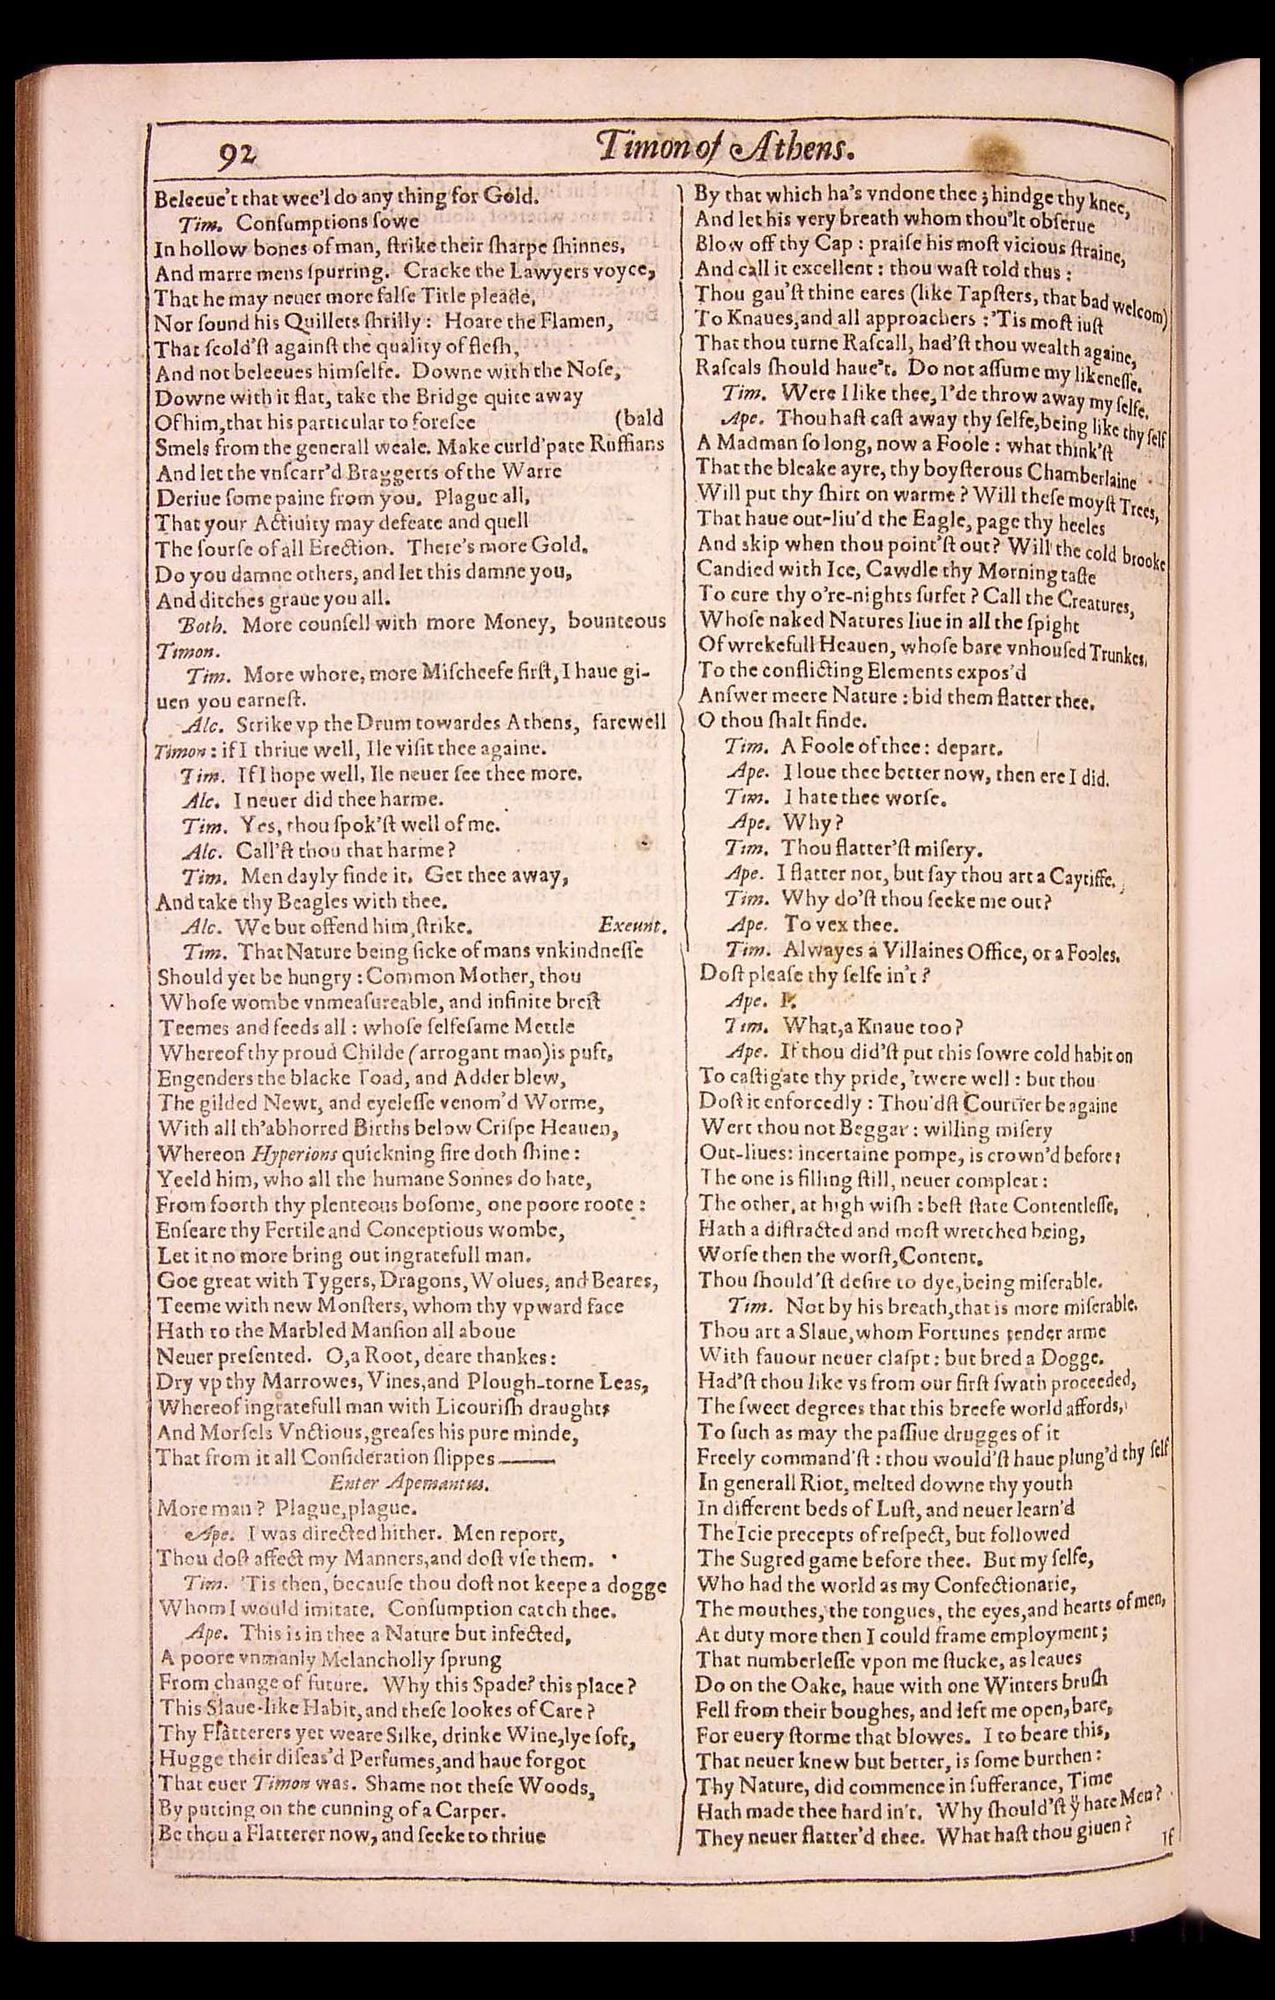 92
Timon of Athens.
Beleeue't that wee'l do any thing for Gold.
Tim. Conſumptions ſowe
In hollow bones of man, ſtrike their ſharpe ſhinnes,
And marre mens ſpurring. Cracke the Lawyers voyce,
That he may neuer more falſe Title pleade,
Nor ſound his Quillets ſhrilly: Hoare the Flamen,
That ſcold'ſt againſt the quality of fleſh,
And not beleeues himſelfe. Downe with the Noſe,
Downe with it flat, take the Bridge quite away
Of him, that his particular to foreſee
(bald
Smels from the generall weale. Make curld'pate Ruffians
And let the vnſcarr'd Braggerts of the Warre
Deriue ſome paine from you. Plague all,
That your Actiuity may defeate and quell
The ſourſe of all Erection. There's more Gold.
Do you damne others, and let this damne you,
And ditches graue you all.
Both. More counſell with more Money, bounteous
Timon.
Tim. More whore, more Miſcheefe firſt, I haue gi-
uen you earneſt.
Alc. Strike vp the Drum towardes Athens, farewell
Timon: if I thriue well, Ile viſit thee againe.
Tim. If I hope well, Ile neuer ſee thee more.
Alc. I neuer did thee harme.
Tim. Yes, thou ſpok'ſt well of me.
Alc. Call'ſt thou that harme?
Tim. Men dayly finde it. Get thee away,
And take thy Beagles with thee.
Alc. We but offend him, ſtrike. Exeunt.
Tim. That Nature being ſicke of mans vnkindneſſe
Should yet be hungry: Common Mother, thou
Whoſe wombe vnmeaſureable, and infinite breſt
Teemes and feeds all: whoſe ſelfeſame Mettle
Whereof thy proud Childe (arrogant man) is puft,
Engenders the blacke Toad, and Adder blew,
The gilded Newt, and eyeleſſe venom'd Worme,
With all th'abhorred Births below Criſpe Heauen,
Whereon Hyperions quickning fire doth ſhine:
Yeeld him, who all the humane Sonnes do hate,
From foorth thy plenteous boſome, one poore roote:
Enſeare thy Fertile and Conceptious wombe,
Let it no more bring out ingratefull man.
Goe great with Tygers, Dragons, Wolues, and Beares,
Teeme with new Monſters, whom thy vpward face
Hath to the Marbled Manſion all aboue
Neuer preſented. O, a Root, deare thankes:
Dry vp thy Marrowes, Vines, and Plough-torne Leas,
Whereof ingratefull man with Licouriſh draughts
And Morſels Vnctious, greaſes his pure minde,
That from it all Conſideration ſlippes——
Enter Apemantus.
More man? Plague, plague.
Ape. I was directed hither. Men report,
Thou doſt affect my Manners, and doſt vſe them.
Tim. 'Tis then, becauſe thou doſt not keepe a dogge
Whom I would imitate. Conſumption catch thee.
Ape. This is in thee a Nature but infected,
A poore vnmanly Melancholly ſprung
From change of future. Why this Spade? this place?
This Slaue-like Habit, and theſe lookes of Care?
Thy Flatterers yet weare Silke, drinke Wine, lye ſoft,
Hugge their diſeas'd Perfumes, and haue forgot
That euer Timon was. Shame not theſe Woods,
By putting on the cunning of a Carper.
Be thou a Flatterer now, and ſeeke to thriue
By that which ha's vndone thee; hindge thy knee,
And let his very breath whom thou'lt obſerue
Blow off thy Cap: praiſe his moſt vicious ſtraine,
And call it excellent: thou waſt told thus:
Thou gau'ſt thine eares (like Tapſters, that bad welcom)
To Knaues, and all approachers: 'Tis moſt iuſt
That thou turne Raſcall, had'ſt thou wealth againe,
Raſcals ſhould haue't. Do not aſſume my likeneſſe.
Tim. Were I like thee, I'de throw away my ſelfe.
Ape. Thou haſt caſt away thy ſelfe, being like thy ſelf
A Madman ſo long, now a Foole: what think'ſt
That the bleake ayre, thy boyſterous Chamberlaine
Will put thy ſhirt on warme? Will theſe moyſt Trees,
That haue out-liu'd the Eagle, page thy heeles
And skip when thou point'ſt out? Will the cold brooke
Candied with Ice, Cawdle thy Morning taſte
To cure thy o're-nights ſurfet? Call the Creatures,
Whoſe naked Natures liue in all the ſpight
Of wrekefull Heauen, whoſe bare vnhouſed Trunkes,
To the conflicting Elements expos'd
Anſwer meere Nature: bid them flatter thee.
O thou ſhalt finde.
Tim. A Foole of thee: depart.
Ape. I loue thee better now, then ere I did.
Tim. I hate thee worſe.
Ape. Why?
Tim. Thou flatter'ſt miſery.
Ape. I flatter not, but ſay thou art a Caytiffe.
Tim. Why do'ſt thou ſeeke me out?
Ape. To vex thee.
Tim. Alwayes a Villaines Office, or a Fooles.
Doſt pleaſe thy ſelfe in't?
Ape. I.
Tim. What, a Knaue too?
Ape. If thou did'ſt put this ſowre cold habit on
To caſtigate thy pride, 'twere well: but thou
Doſt it enforcedly: Thou'dſt Courtier be againe
Wert thou not Beggar: willing miſery
Out-liues: incertaine pompe, is crown'd before:
The one is filling ſtill, neuer compleat:
The other, at high wiſh: beſt ſtate Contentleſſe,
Hath a diſtracted and moſt wretched being,
Worſe then the worſt, Content.
Thou ſhould'ſt deſire to dye, being miſerable.
Tim. Not by his breath, that is more miſerable.
Thou art a Slaue, whom Fortunes tender arme
With fauour neuer claſpt: but bred a Dogge.
Had'ſt thou like vs from our firſt ſwath proceeded,
The ſweet degrees that this breefe world affords,
To ſuch as may the paſſiue drugges of it
Freely command'ſt: thou would'ſt haue plung'd thy ſelf
In generall Riot, melted downe thy youth
In different beds of Luſt, and neuer learn'd
The Icie precepts of reſpect, but followed
The Sugred game before thee. But my ſelfe,
Who had the world as my Confectionarie,
The mouthes, the tongues, the eyes, and hearts of men,
At duty more then I could frame employment;
That numberleſſe vpon me ſtucke, as leaues
Do on the Oake, haue with one Winters bruſh
Fell from their boughes, and left me open, bare,
For euery ſtorme that blowes. I to beare this,
That neuer knew but better, is ſome burthen:
Thy Nature, did commence in ſufferance, Time
Hath made thee hard in't. Why ſhould'ſt yͧ hate Men?
They neuer flatter'd thee. What haſt thou giuen?
If